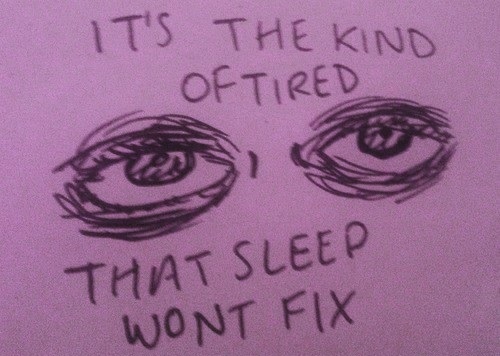 IT'S THE KIND
OF TIRED
THAT SLEEP
WONT FIX